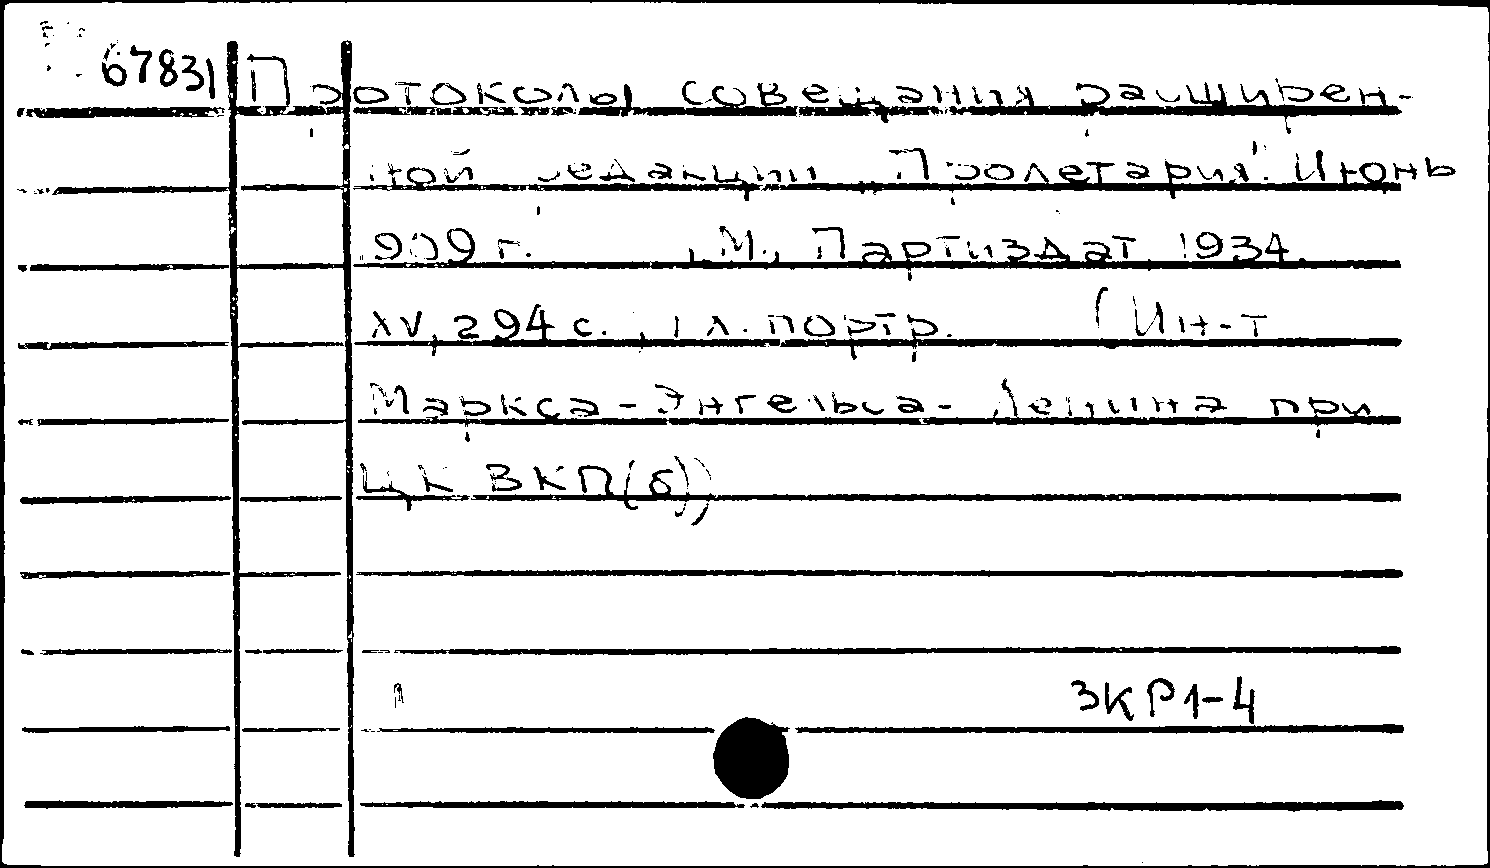 67831 Протоколы совещания расширен-
ной редакции „Пролетария". Июнь
1909 г. М., Партиздат, 1934.
XV, 294 с., 1 л. портр. (Ин-т
Маркса-Энгельса-Ленина при
ЦК ВКП(б))
3КР1-4